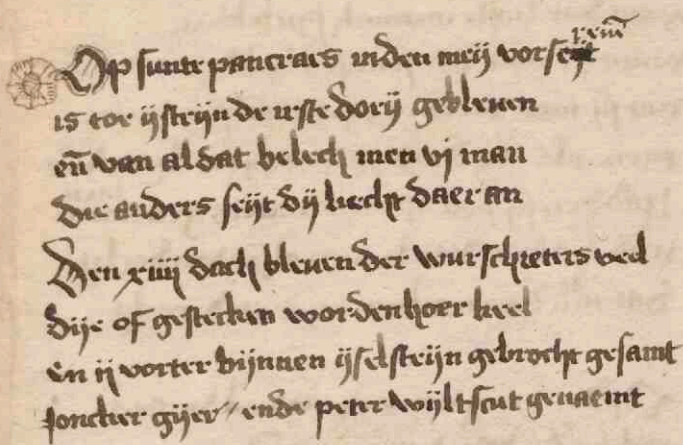 Op sunte pancraes inden meij vorscr̅
is toe ijsteijn de irste dorij gebleuen
en̅ van al dat belech men vj man
die anders seijt dij liecht daer an
Den xiiij dach bleuen der wtirschieters veel
dije of gesteken worden hoer keel
en ij vorter bijnnen ijselsteijn gebrocht gesamt
Joncker gijer // ende peter wijltscut genaemt